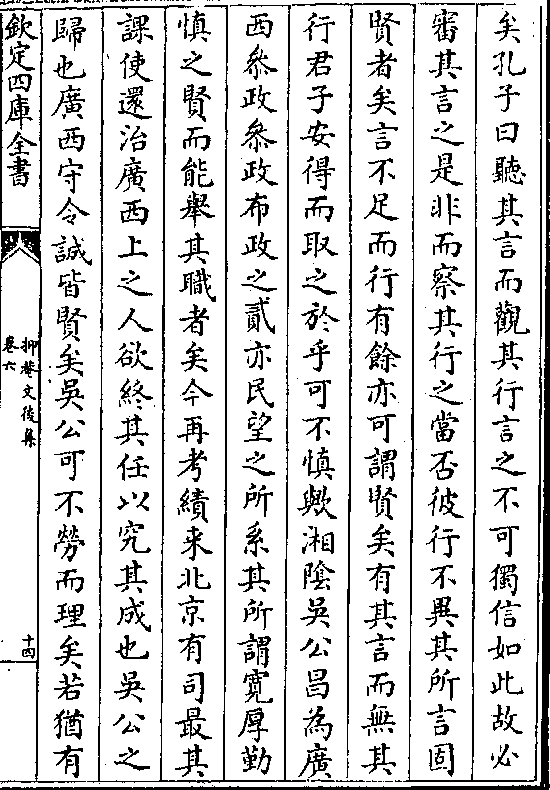 矣孔子曰聽其言而觀其行言之不可獨信如此故必
審其言之是非而察其行之當否彼行不異其所言固
賢者矣言不足而行有餘亦可謂賢矣有其言而無其
行君子安得而取之於乎可不慎歟湘陰吳公昌為廣
西叅政叅政布政之貳亦民望之所系其所謂寛厚勤
慎之賢而能舉其職者矣今再考績来北京有司最其
課使還治廣西上之人欲終其任以究其成也吳公之
歸也廣西守令誠皆賢矣吳公可不勞而理矣若猶有
欽定四庫全書
抑菴文後集
卷六
十四